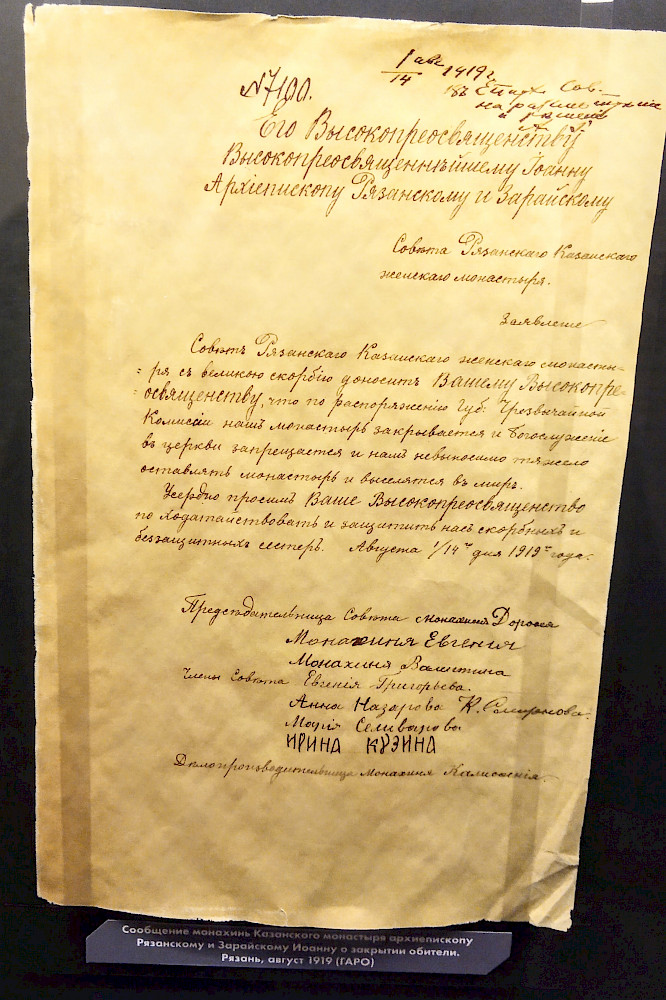 1 авг 1919 г.
14
№7100.
въ Епарх. Сов.
на
и
Его Высокопреосвященству
Высокопреосвященнѣйшему Іоанну
Архіепископу Рязанскому и Зарайскому
Совѣта Рязанскаго Казанскаго
женскаго монастыря.
Заявленіе
Совѣтъ Рязанскаго Казанскаго женскаго монасты-
ря съ великою скорбію доноситъ Вашему Высокопре-
освященству, что по распоряженію Губ. Чрезвычайной
Комиссіи нашъ монастырь закрывается и богослуженіе
въ церкви запрещается и намъ невыносимо тяжело
оставлять монастырь и выселятся въ миръ.
Усердно просимъ Ваше Высокопреосвященство
по ходатайствовать и защитить насъ скорбныхъ и
беззащитныхъ сестеръ. Августа 1/14го дня 1919го года.
Предсѣдательница Совѣта монахиня Дорофея
Монахиня Евгения
Монахиня Валентина
Члены Совѣта Евгенія Григорьева.
Анна Назарова К. Смирнова.
Марія Селиварова
ИРИНА КУЗИНА
Дѣлопроизводительница Монахиня
Сообщение монахинь Казанского монастыря архиепископу
Рязанскому и Зарайскому Иоанну о закрытии обители.
Рязань, август 1919 (ГАРО)